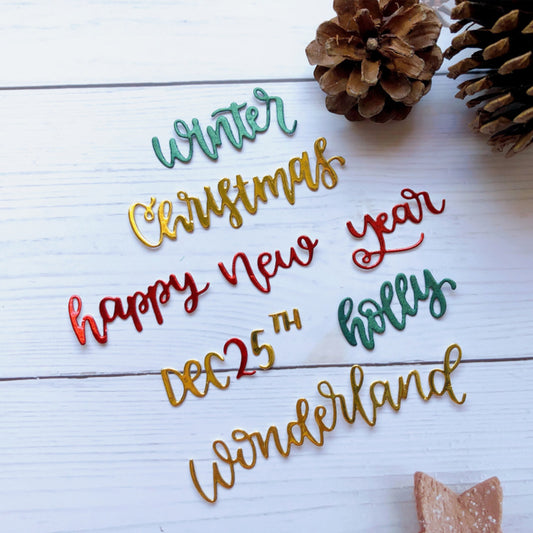 winter
Christmas
happy new year
holly
DEC 25TH
wonderland